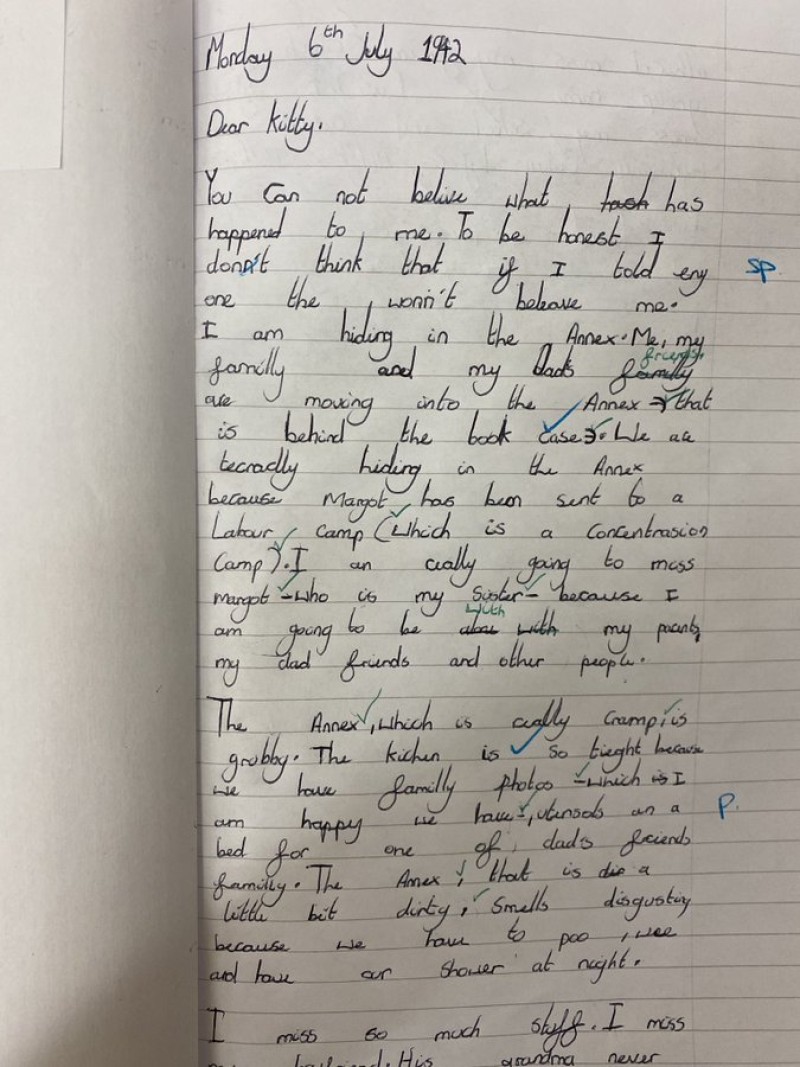 Monday 6th July 1942
Dear Kitty.
You Can not belive what has
happened to me. To be honest I
don't think that if I told eny sp.
one the wonn't beleave me.
I am hiding in the Annex. Me, my
familly and my dads friends
are moving into the Annex that
is behind the book case. We are
tecnadly hiding in the Annex
because Margot has been sent to a
Labour Camp (Which is a Concentrasion
Camp). I an really going to miss
Margot -who is my Sister- because I
am going to be with my parents,
my dad friends and other people.
The Annex, which is really Cramp, is
grubby. The kichen is so tieght because
we have familly photos -which I
am happy we have-, utensols an a P.
bed for one of dads friends
familly. The Annex, that is a
little bit dirty, smells disgusting
because we have to poo, wee
and have our shower at night.
I miss so much stuff. I miss
my boyfriend. His grandma never